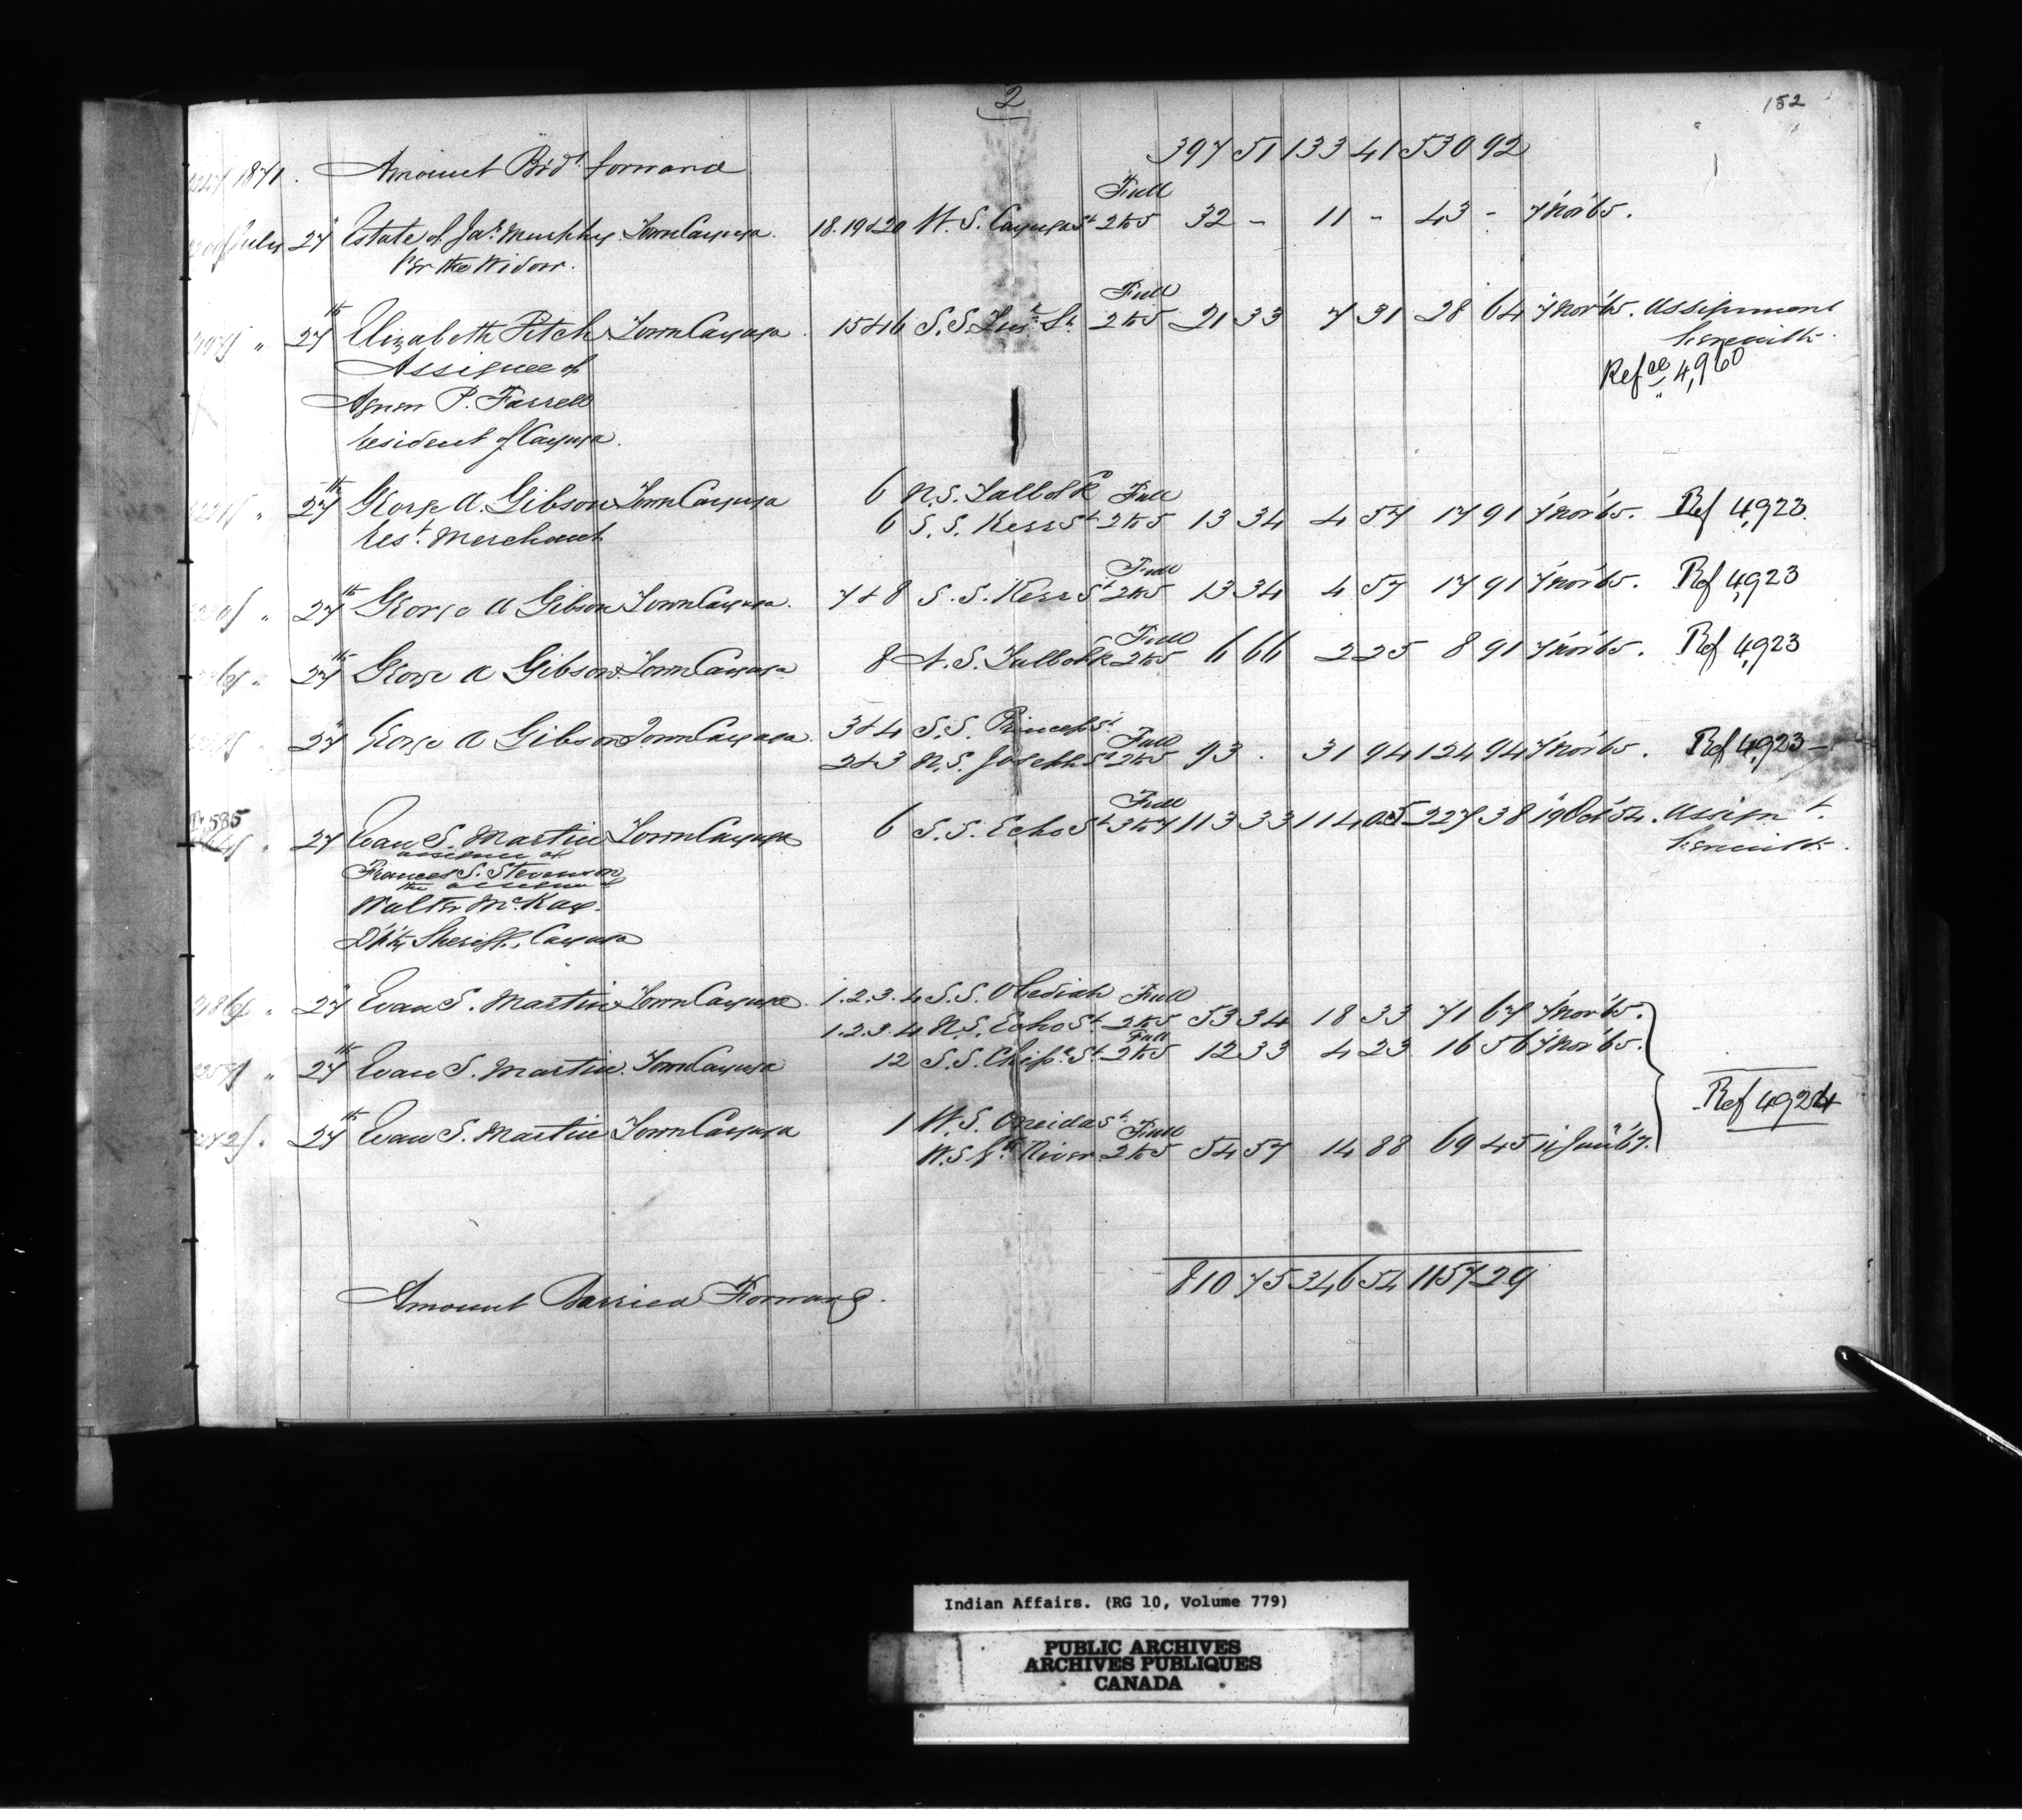 2
152
1871. Amount Br'd forward 397 51 133 41 530 92
Full
July 27 Estate of Jas. Murphy. Town Cayuga. 18.19&20 W.S. Cayuga St 2to5 32 - 11 - 43 - 7 Nov'65.
Per the Widow.
Full
" 27th Elizabeth Fitch Town Cayuga. 15&16 S.S. St. 2to5 21 33 7 31 28 64 7 Nov'65. Assignment
Assignee of herewith.
Refce 4,960
Agnes P. Farrell
resident of Cayuga.
6 N.S. Talbot R Full
" 27th George A. Gibson Town Cayuga 6 S.S. Kerr St 2to5 13 34 4 57 17 91 7 Nov'65. Ref 4,923.
Rest. Merchant
Full
" 27th George A Gibson Town Cayuga. 7&8 S.S. Kerr St 2to5 13 34 4 57 17 91 7 Nov'65. Ref 4,923
Full
" 27th George A Gibson Town Cayuga 8 N.S. Talbot R 2to5 6 66 2 25 8 91 7 Nov'65. Ref 4,923
3&4 S.S. Princess St. Full
" 27 George A Gibson Town Cayuga. 2&3 N.S. Joseph St 2to5 93 . 31 94 124 94 7 Nov'65. Ref 4,923-
585 Full
" 27 Evan S. Martin Town Cayuga 6 S.S. Echo St 3to7 113 33 114 05 227 38 19 Oct'54. Assignt.
assignee of herewith.
Frances S. Stevenson
the assignee of
Walter McKay.
Dpty Sheriff, Cayuga
1.2.3.4 S.S. Obediah Full
" 27 Evan S. Martin Town Cayuga. 1.2.3.4 N.S. Echo St. 2to5 53 34 18 33 71 67 7 Nov'65.
Full
" 27th Evan S. Martin. Town Cayuga 12 S.S. Chipa. St. 2to5 12 33 4 23 16 56 7 Nov'65.
Ref 4924
1 W.S. Oneida St. Full
27th Evan S. Martin Town Cayuga W.S. Gd River. 2to5 54 57 14 88 69 45 11 Jan'67.
Amount Carried Forward. 810 75 346 54 1157 29
Indian Affairs. (RG 10, Volume 779)
PUBLIC ARCHIVES
ARCHIVES PUBLIQUES
CANADA